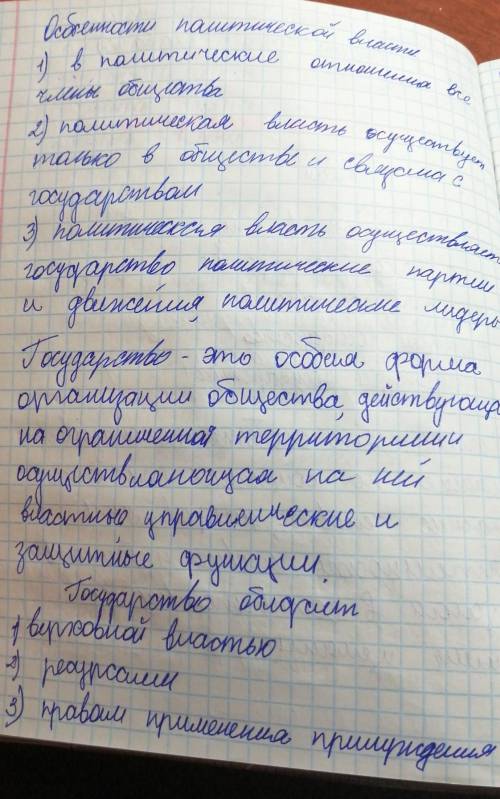 Особенности политической власти
1) в политические отношения все
члены общества
2) политическая власть осуществует
только в обществе и связана с
государством
3) политическая власть осуществляет
государство политические партии
и движения, политические лидеры
Государство - это особая форма
организации общества, действующа
на ограниченной территории
осуществляющая на ней
властные управленческие и
защитные функции.
Государство обладает
1) верховной властью
2) ресурсами
3) правам применения принуждения